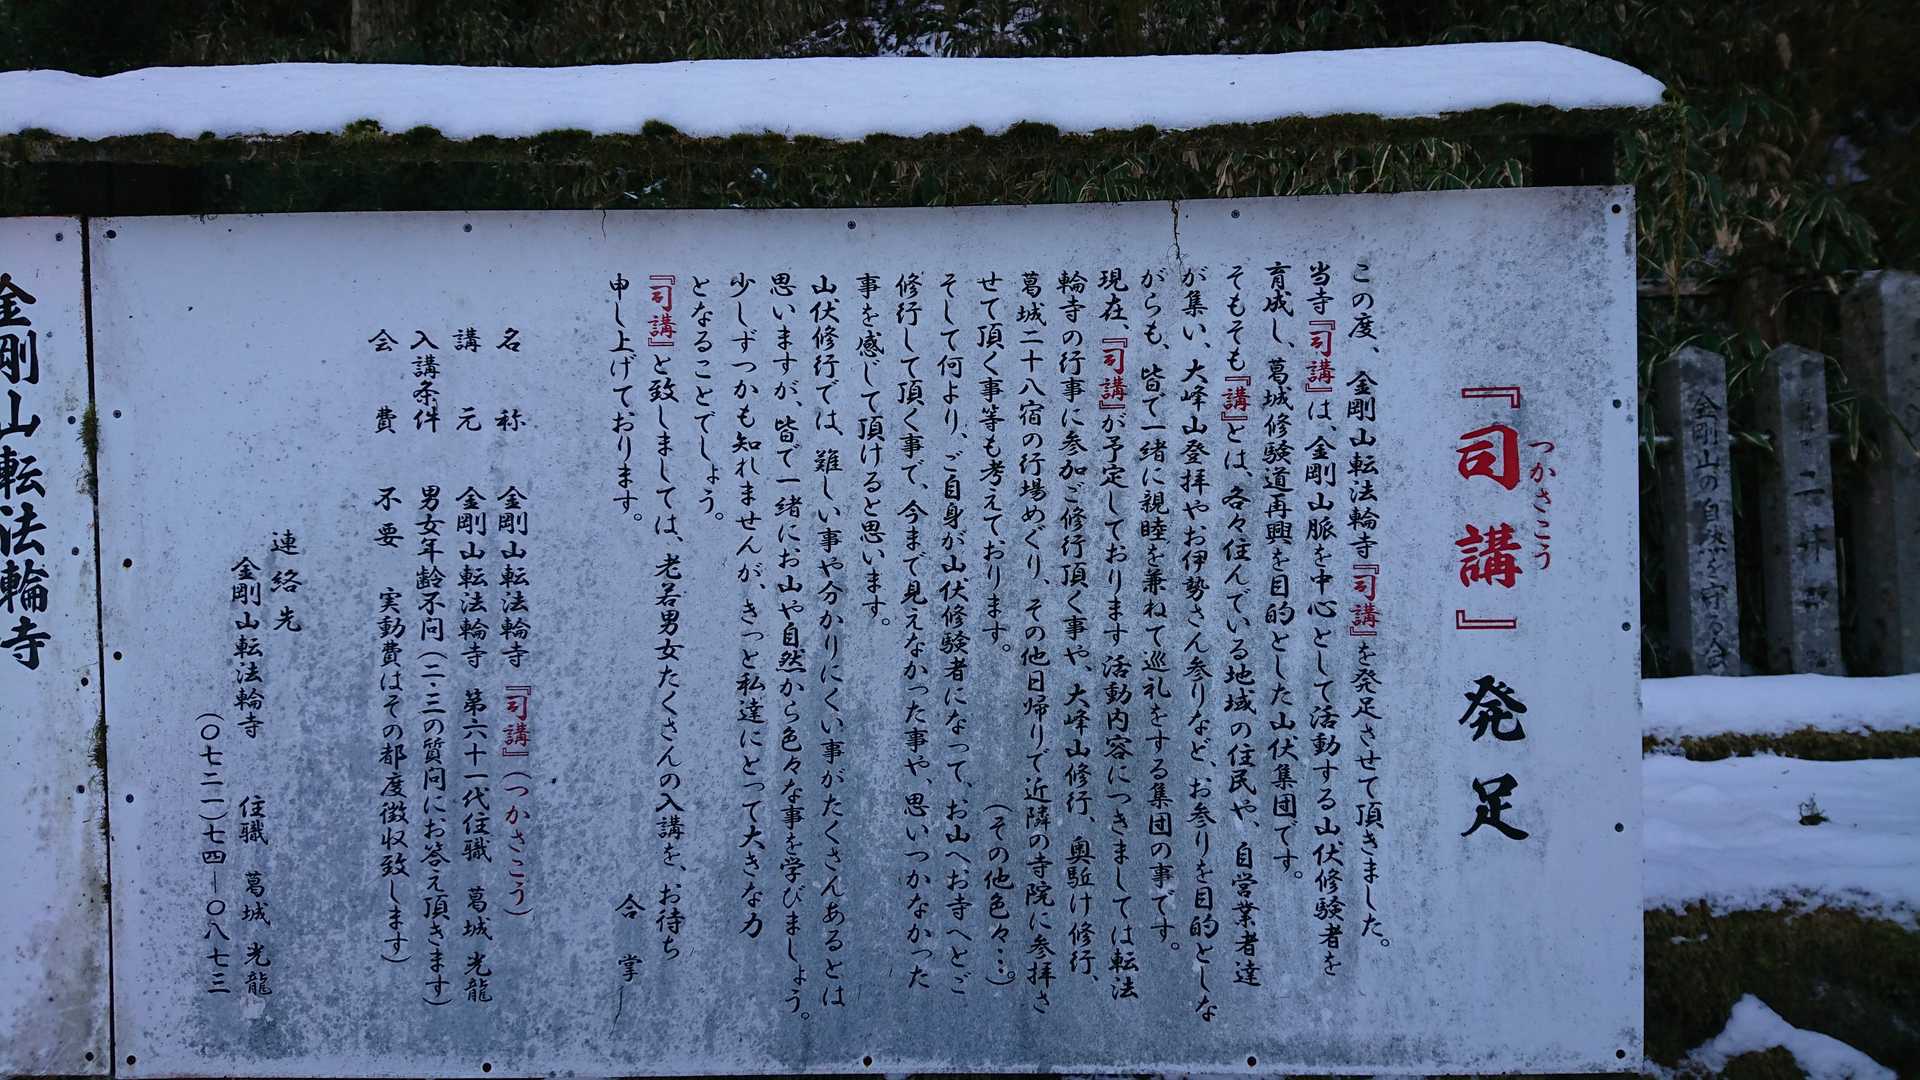 『司講』発足
つかさこう
この度、金剛山転法輪寺『司講』を発足させて頂きました。
当寺『司講』は、金剛山脈を中心として活動する山伏修験者を
育成し、葛城修験道再興を目的とした山伏集団です。
そもそも『講』とは、各々住んでいる地域の住民や、自営業者達
が集い、大峰山登拝やお伊勢さん参りなど、お参りを目的としな
がらも、皆で一緒に親睦を兼ねて巡礼をする集団の事です。
現在、『司講』が予定しております活動内容につきましては転法
輪寺の行事に参加ご修行頂く事や、大峰山修行、奥駈け修行、
葛城二十八宿の行場めぐり、その他日帰りで近隣の寺院に参拝さ
せて頂く事等も考えております。（その他色々…。）
そして何より、ご自身が山伏修験者になって、お山へお寺へとご
修行して頂く事で、今まで見えなかった事や、思いつかなかった
事を感じて頂けると思います。
山伏修行では、難しい事や分かりにくい事がたくさんあるとは
思いますが、皆で一緒にお山や自然から色々な事を学びましょう。
少しずつかも知れませんが、きっと私達にとって大きな力
となることでしょう。
『司講』と致しましては、老若男女たくさんの入講を、お待ち
申し上げております。
合掌
名称 金剛山転法輪寺『司講』（つかさこう）
講元 金剛山転法輪寺 第六十一代住職 葛城 光龍
入講条件 男女年齢不問（二・三の質問にお答え頂きます）
会費 不要 実動費はその都度徴収致します）
連絡先
金剛山転法輪寺 住職 葛城 光龍
（〇七二一）七四ー〇八七三
金剛山転法輪寺
金剛山の自然を守る会